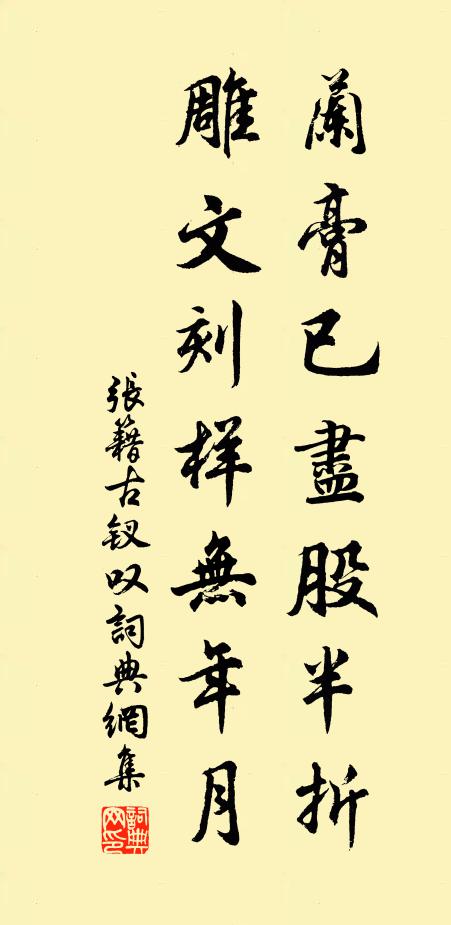 蘭膏已盡股半折
雕文刻样無年月
張籍古钗叹詞典網集
詞典网印